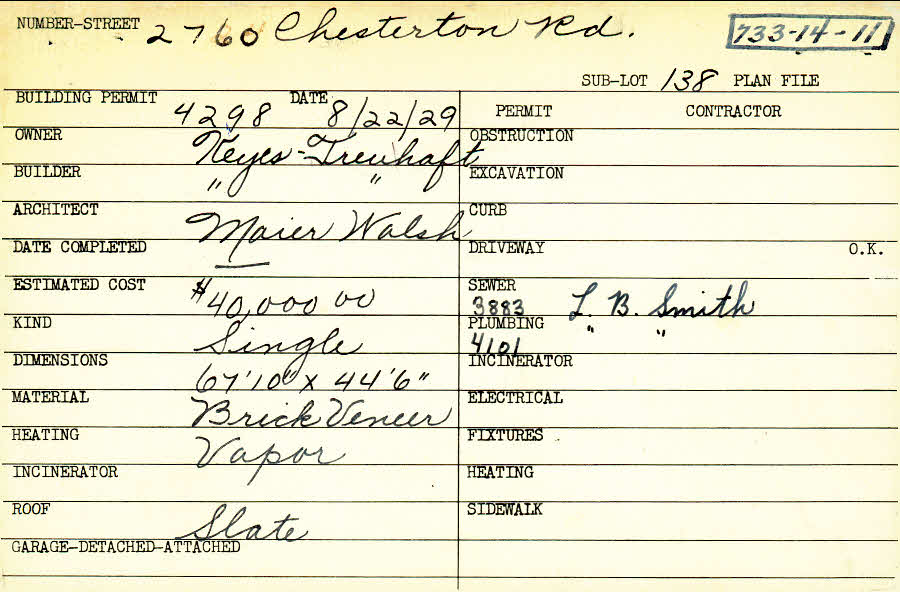 NUMBER-STREET 2760 Chesterton Rd. 733-14-11
SUB-LOT 138 PLAN FILE
BUILDING PERMIT 4298 DATE 8/22/29
PERMIT CONTRACTOR
OWNER Keyes-Treuhaft
BUILDER " "
ARCHITECT Maier Walsh
DATE COMPLETED —
ESTIMATED COST $40,000 00
KIND Single
DIMENSIONS 67'10" x 44'6"
MATERIAL Brick Veneer
HEATING Vapor
INCINERATOR
ROOF Slate
GARAGE-DETACHED-ATTACHED
OBSTRUCTION
EXCAVATION
CURB
DRIVEWAY O.K.
SEWER
3883 L. B. Smith
PLUMBING " "
4101
INCINERATOR
ELECTRICAL
FIXTURES
HEATING
SIDEWALK